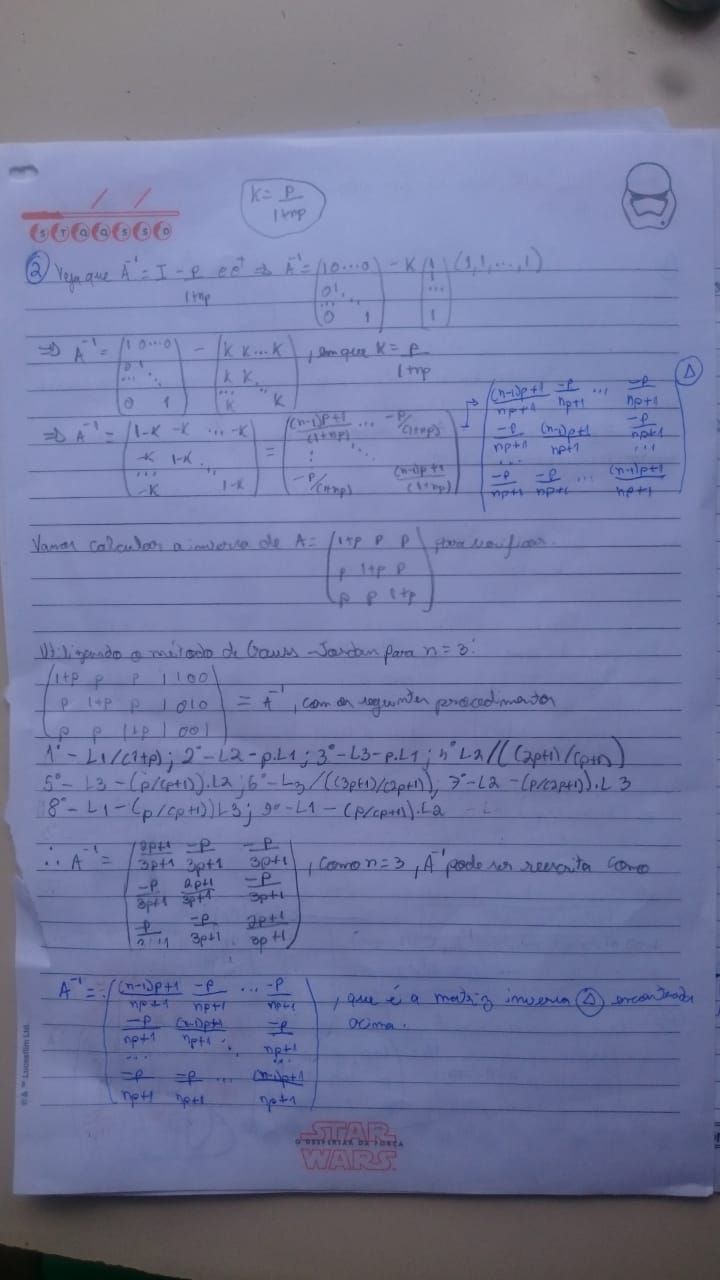 K = p/(1+np)
S T Q Q S S D
② Veja que A⁻¹ = I - p/(1+np) e eᵗ ⇒ A⁻¹ = (1 0 ... 0; 0 1 ...; ... ; 0 1) - K (1; 1; ...; 1) (1, 1, ..., 1)
⇒ A⁻¹ = (1 0 ... 0; 0 1; ... ; 0 1) - (K K ... K; K K; ... ; K K), em que K = p/(1+np)
⇒ A⁻¹ = (1-K -K ... -K; -K 1-K ...; ... ; -K 1-K) = ((n-1)p+1/(1+np) ... -p/(1+np); ⋮ ⋱; -p/(1+np) (n-1)p+1/(1+np)) → ((n-1)p+1/np+1 -p/np+1 ... -p/np+1; -p/np+1 (n-1)p+1/np+1 -p/np+1; ... ; -p/np+1 -p/np+1 ... (n-1)p+1/np+1) Δ
Vamos calcular a inversa de A = (1+p p p; p 1+p p; p p 1+p) para verificar.
Utilizando o método de Gauss-Jordan para n=3:
(1+p p p | 1 0 0; p 1+p p | 0 1 0; p p 1+p | 0 0 1) = A⁻¹, com os seguintes procedimentos
1º - L1/(1+p); 2º - L2-p.L1; 3º - L3-p.L1; 4º L2/((2p+1)/(p+1))
5º - L3 - (p/(p+1)).L2; 6º - L3/((3p+1)/(2p+1)); 7º - L2 - (p/(2p+1)).L3
8º - L1 - (p/(p+1))L3; 9º - L1 - (p/(p+1)).L2
∴ A⁻¹ = (2p+1/3p+1 -p/3p+1 -p/3p+1; -p/3p+1 2p+1/3p+1 -p/3p+1; -p -p/3p+1 2p+1/3p+1), como n=3, A⁻¹ pode ser reescrita como
A⁻¹ = ((n-1)p+1/np+1 -p/np+1 ... -p/np+1; -p/np+1 (n-1)p+1/np+1 ⋱ -p/np+1; ... ; -p/np+1 -p/np+1 ... (n-1)p+1/np+1), que é a matriz inversa Δ encontrada
acima.
© & ™ Lucasfilm Ltd.
STAR
O DESPERTAR DA FORÇA
WARS